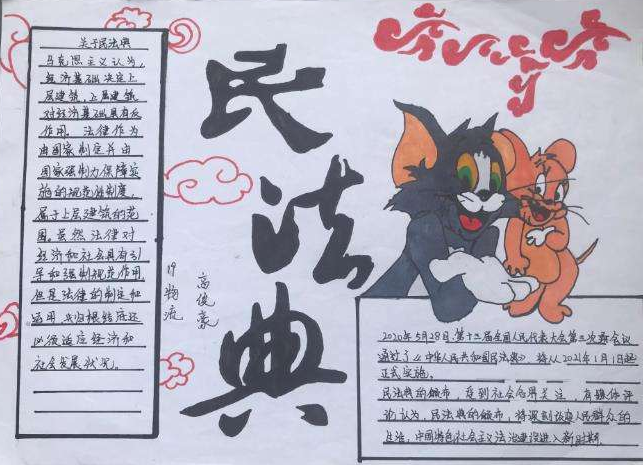 关于民法典
马克思主义认为,
经济基础决定上
层建筑,上层建筑
对经济基础具有反
作用。法律作为
由国家制定并由
国家强制力保障实
施的规范性制度,
属于上层建筑的范
围。虽然法律对
经济和社会具有引
导和强制规范作用
但是法律的制定和
适用 归根结底还
必须适应经济和
社会发展状况。
民法典
19物流
高俊豪
2020年5月28日,第十三届全国人民代表大会第三次会议
通过了《中华人民共和国民法典》,将从2021年1月1日起
正式实施。
民法典的颁布,受到社会各界关注,有媒体评
论认为,民法典的颁布,将深刻改变人民群众的
生活,中国特色社会主义法治建设进入新时期。